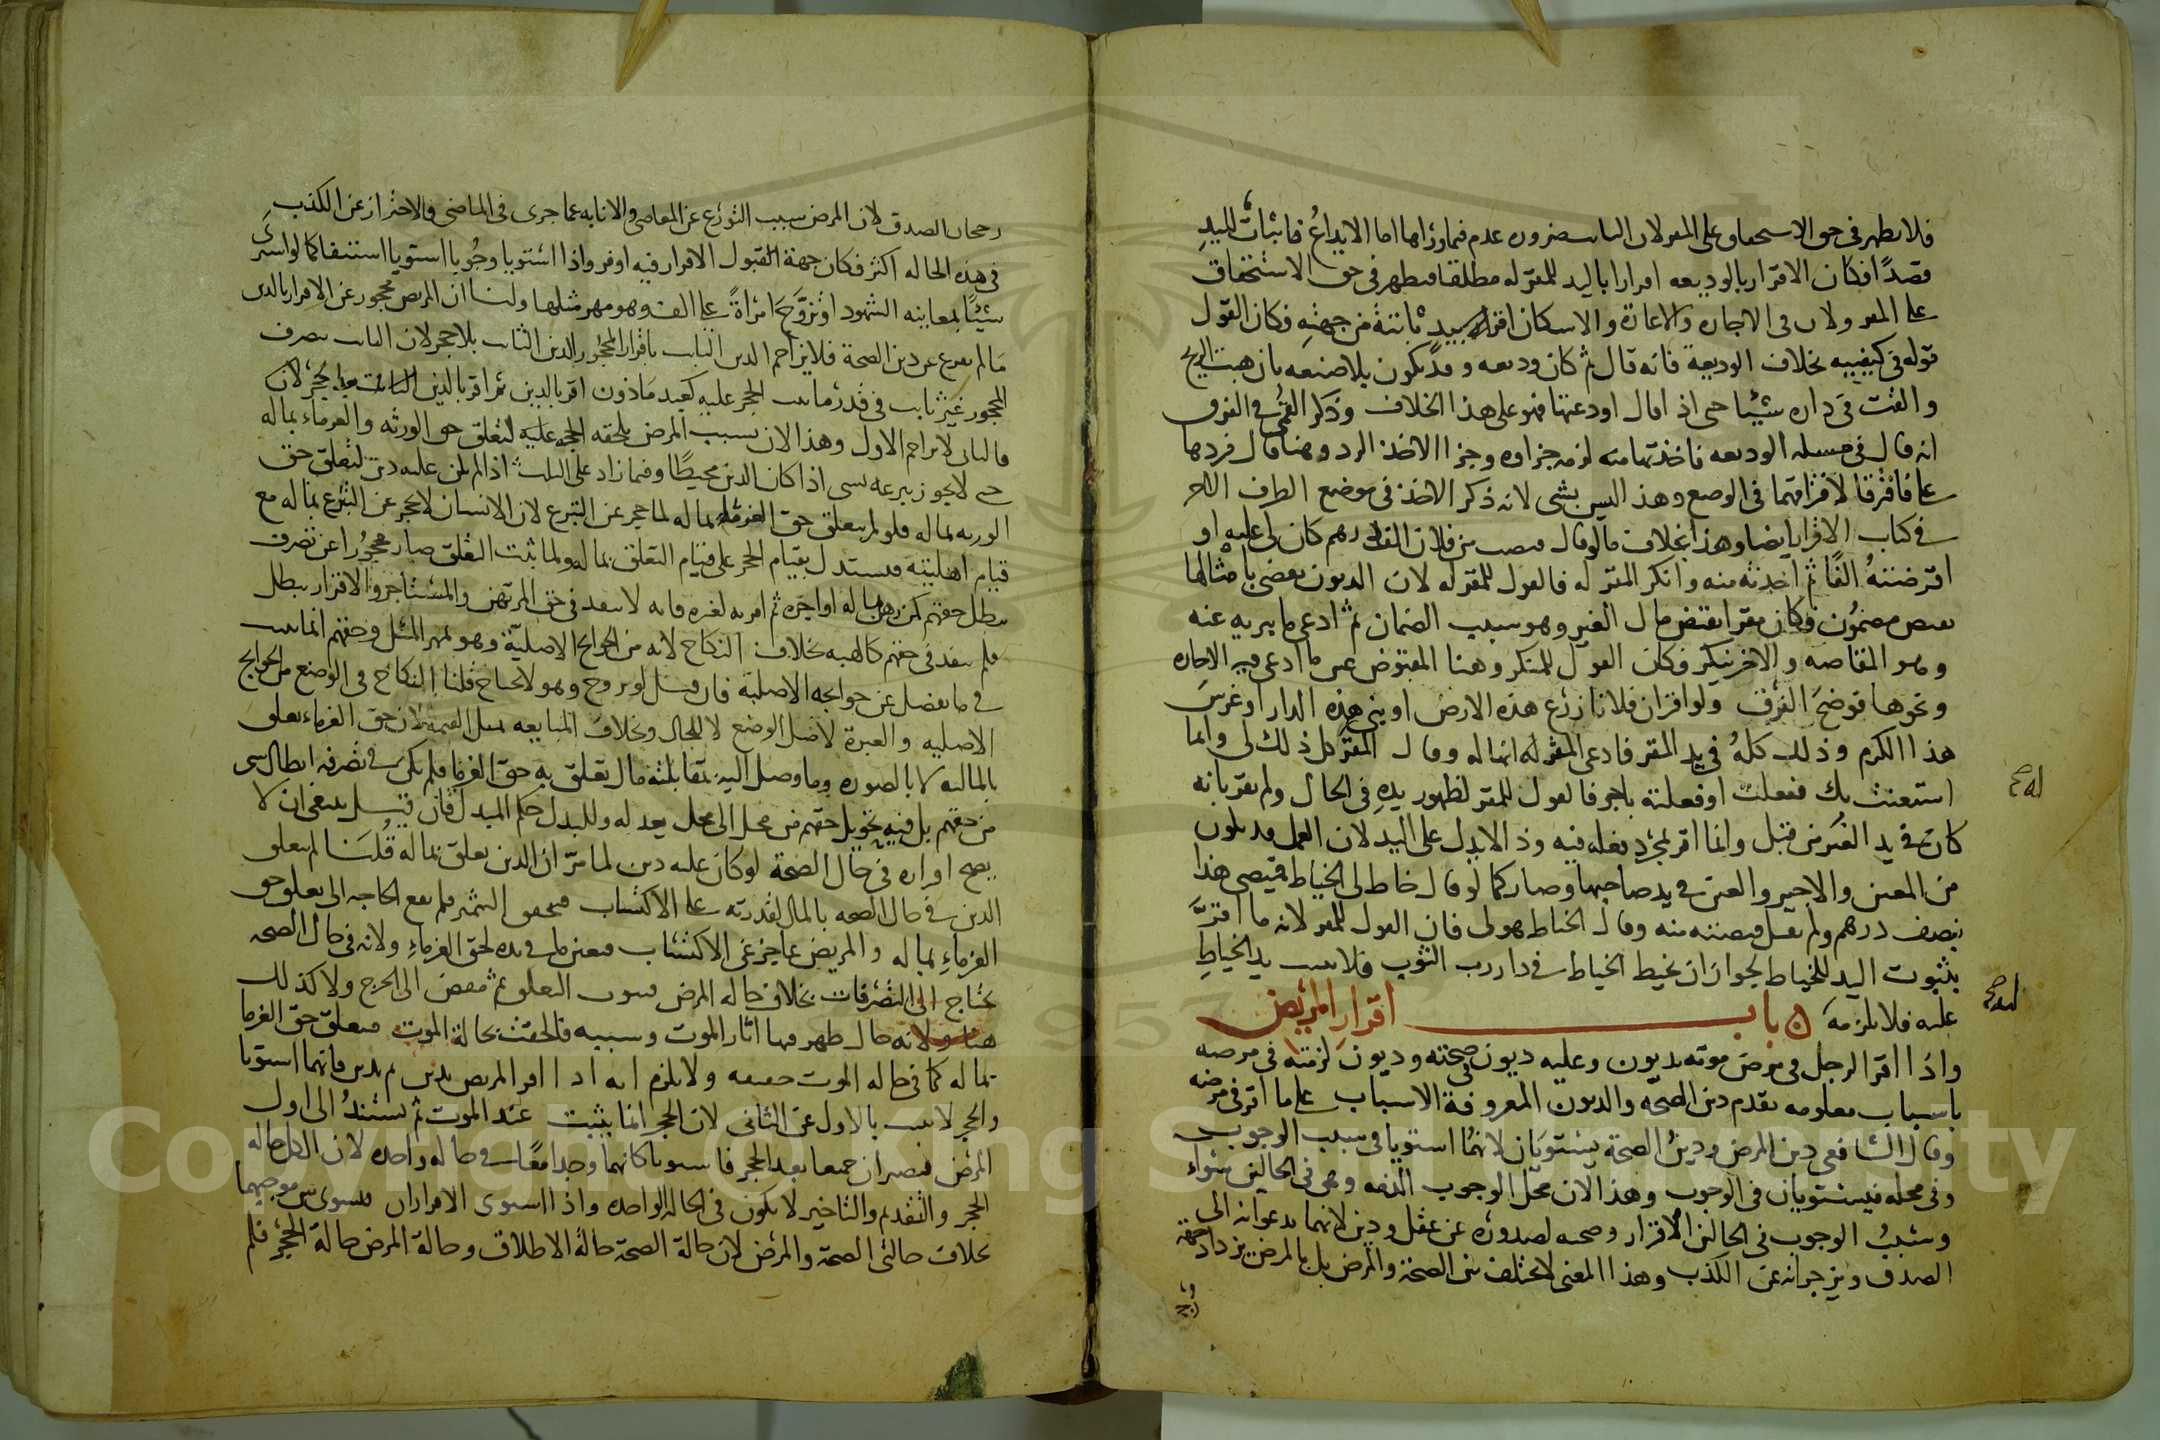 فلا يظهر في حق الاستحقاق على المقر لان الثابت ضرورة عدم فيما وراها اما الايداعُ فاثبات اليد
قصدًا فكان الاقرار بالوديعه اقرارا باليد للمقر له مطلقا فيظهر في حق الاستحقاق
على المقر ولان في الاجاره والاعارة والاسكان اقر بيد ثابتة من جهته فكان القول
قوله في كيفيته بخلاف الوديعة فانه قال ثم كان وديعه وقد يكون بلا صنعه بان هبت الريح
والقت في داره شيئا حتى اذا قال اودعتها فهو على هذا الخلاف وذكر القمي في الفرق
انه قال في مسله الوديعه فاخذتها منه لزمه جزاوه وجزا الاخذ الرد وهنا قال فردها
على فافترقا لافتراقهما في الوضع وهذا ليس بشي لانه ذكر الاخذ في موضع الطرف الاخر
في كتاب الاقرار ايضا وهذا بخلاف ما لو قال قبضت من فلان الف درهم كان لي عليه او
اقرضتهُ الفًا ثم اخذته منه وانكر المقر له فالقول للمقر له لان الديون تقضى بامثالها
بقبض مضمون فكان مقرا بقبض مال الغير وهو سبب الضمان ثم ادعى ما يبريه عنه
وهو المقاصه والاخر ينكر فكان القول للمنكر وهنا المقبوض عين ما ادعى فيه الاجاره
ونحوها فوضحَ الفرق ولو اقر ان فلانا زرع هذه الارض او بنى هذه الدار او غرسَ
هذا الكرم وذلك كلهُ في يد المقر فادعى المقر له انها له وقال المقر كل ذلك لي وانما
استعنت بك ففعلت او فعلته باجر فالقول للمقر لظهور يدهِ في الحال ولم يقر بانه
كان في يد الغير من قبل وانما اقر بمجرد فعله فيه وذا لا يدل على اليد لان العمل قد يكون
من المعين والاجير والعين في يد صاحبها وصار كما لو قال خاط لي الخياط قميصي هذا
بنصف درهم ولم يقل قبضته منه وقال الخياط هو لي فان القول للمقر لانه ما اقرَّ
بثبوت اليد للخياط لجواز ان يخيط الخياط في دار رب الثوب فلا يثبت يد الخياطِ
عليه فلا يلزمه ۞ باب اقرار المريض
واذا اقر الرجل في مرض موته بديون وعليه ديون في صحته وديون لزمته في مرضه
باسباب معلومه يقدم دين الصحه والديون المعروفة الاسباب على ما اقر في مرضه
وقال الشافعي دين المرض ودينُ الصحة يستويَان لانهما استويا في سبب الوجوب
وفي محله فيستويان في الوجوب وهذا لان محل الوجوب الذمه وهي في الحالين سَواء
وسَببُ الوجوب في الحالين الاقرار وصحته لصدوره عن عقل ودين لانهما يدعوانه الى
الصدق ويزجرانه عن الكذب وهذا المعنى لا يختلف بين الصحة والمرض بل بالمرض يزداد جهة
رجحان الصدق لان المرض سبب التورع عن المعاصي والانابه عما جرى في الماضي والاحتراز عن الكذب
في هذه الحاله اكثر فكان جهة القبول الاقرار فيه اوفر واذا استويا وجُوبا استويا استيفا كما لو اشترى
شيئًا بمعاينه الشهود او تزوَّج امراةً على الف وهو مهر مثلها ولنا ان المريض محجور عن الاقرار بالدين
ما لم يفرغ عن دين الصحة فلا يزاحم الدين الثابت باقرار المحجور الدين الثابت بلا حجر لان الثابت بتصرف
المحجور غير ثابت في قدر ما ثبت الحجر عليه كعبد مَاذون اقر بالدين ثم اقر بالدين الثابت بعد الحجر لان
فالثاني لا يزاحم الاول وهذا لان بسبب المرض يلحقه الحجر عليه لتعلق حق الورثه والغرماء بماله
حتى لا يجوز تبرعه بشي اذا كان الدين محيطًا وفيما زاد على الثلث اذا لم يكن عليه دين لتعلق حق
الورثه بماله فلو لم يتعلق حق الغرماء بماله لما حجر عن التبرع لان الانسان لا يحجر عن التبرع بماله مع
قيام اهليته فيستدل بقيام الحجر على قيام التعلق بماله ولما ثبت التعلق صار محجورا عن تصرف
يبطل حقهم كمن رهن ماله او اجره ثم اقر به لغيره فانه لا ينفذ في حق المرتهن والمستاجر والاقرار يبطل
فلم ينفذ في حقهم كالهبه بخلاف النكاح لانه من الحوايج الاصليّة وهو بمهر المثل وحقهم انما يثبت
في ما يفضل عن حوايجه الاصلية فان قيل لو تزوج وهو لا يحتاج قلنا النكاح في الوضع من الحوايج
الاصليه والعبرة لاصل الوضع لا للحال وبخلاف المبايعه بمثل القيمة لان حق الغرماء تعلق
بالماليه لا بالصوره وما وصل اليه بمقابلته مال تعلق به حق الغرما فلم يكن في تصرفه ابطال شي
من حقهم بل فيه تحويل حقهم من محل الى محل يعدله وللبدل حكم المبدل فان قيل ينبغي ان لا
يصح اقراره في حال الصحة لو كان عليه دين لما مرّ ان الدين تعلق بماله قُلنا لم يتعلق
الدين في حال الصحه بالمال لقدرته على الاكتساب فيتحقق التثمير فلم تقع الحاجه الى تعلق حق
الغرماءِ بماله والمريض عاجز عن الاكتساب فتعين ما في يده لحق الغرماءِ ولانه في حال الصحه
يحتاج الى التصرفات بخلاف حاله المرض فيثبت التعلق ثم يفضي الى الحرج ولا كذلك
هنا ولانه حال ظهر فيها اثار الموت وسببه فالحقت بحالة الموت فيتعلق حق الغرما
بماله كما في حاله الموت حقيقه ولا يلزم انه اذا اقر المريض بدين ثم بدين فانهما استويا
والحجر لا يثبت بالاول عن الثاني لان الحجر انما يثبت عند الموت ثم يستندُ الى اول
المرض فيصيران جميعا بعد الحجر فاستويا كانهما وجدا معًا في حاله واحده لان الكل حاله
الحجر والتقديم والتاخير لا يكون في الحاله الواحده واذا استوى الاقراران فيسوى بين موجبهما
بخلاف حالتي الصحة والمرض لان حالة الصحة حالة الاطلاق وحالة المرض حالة الحجر فلم
Copyright © King Saud University